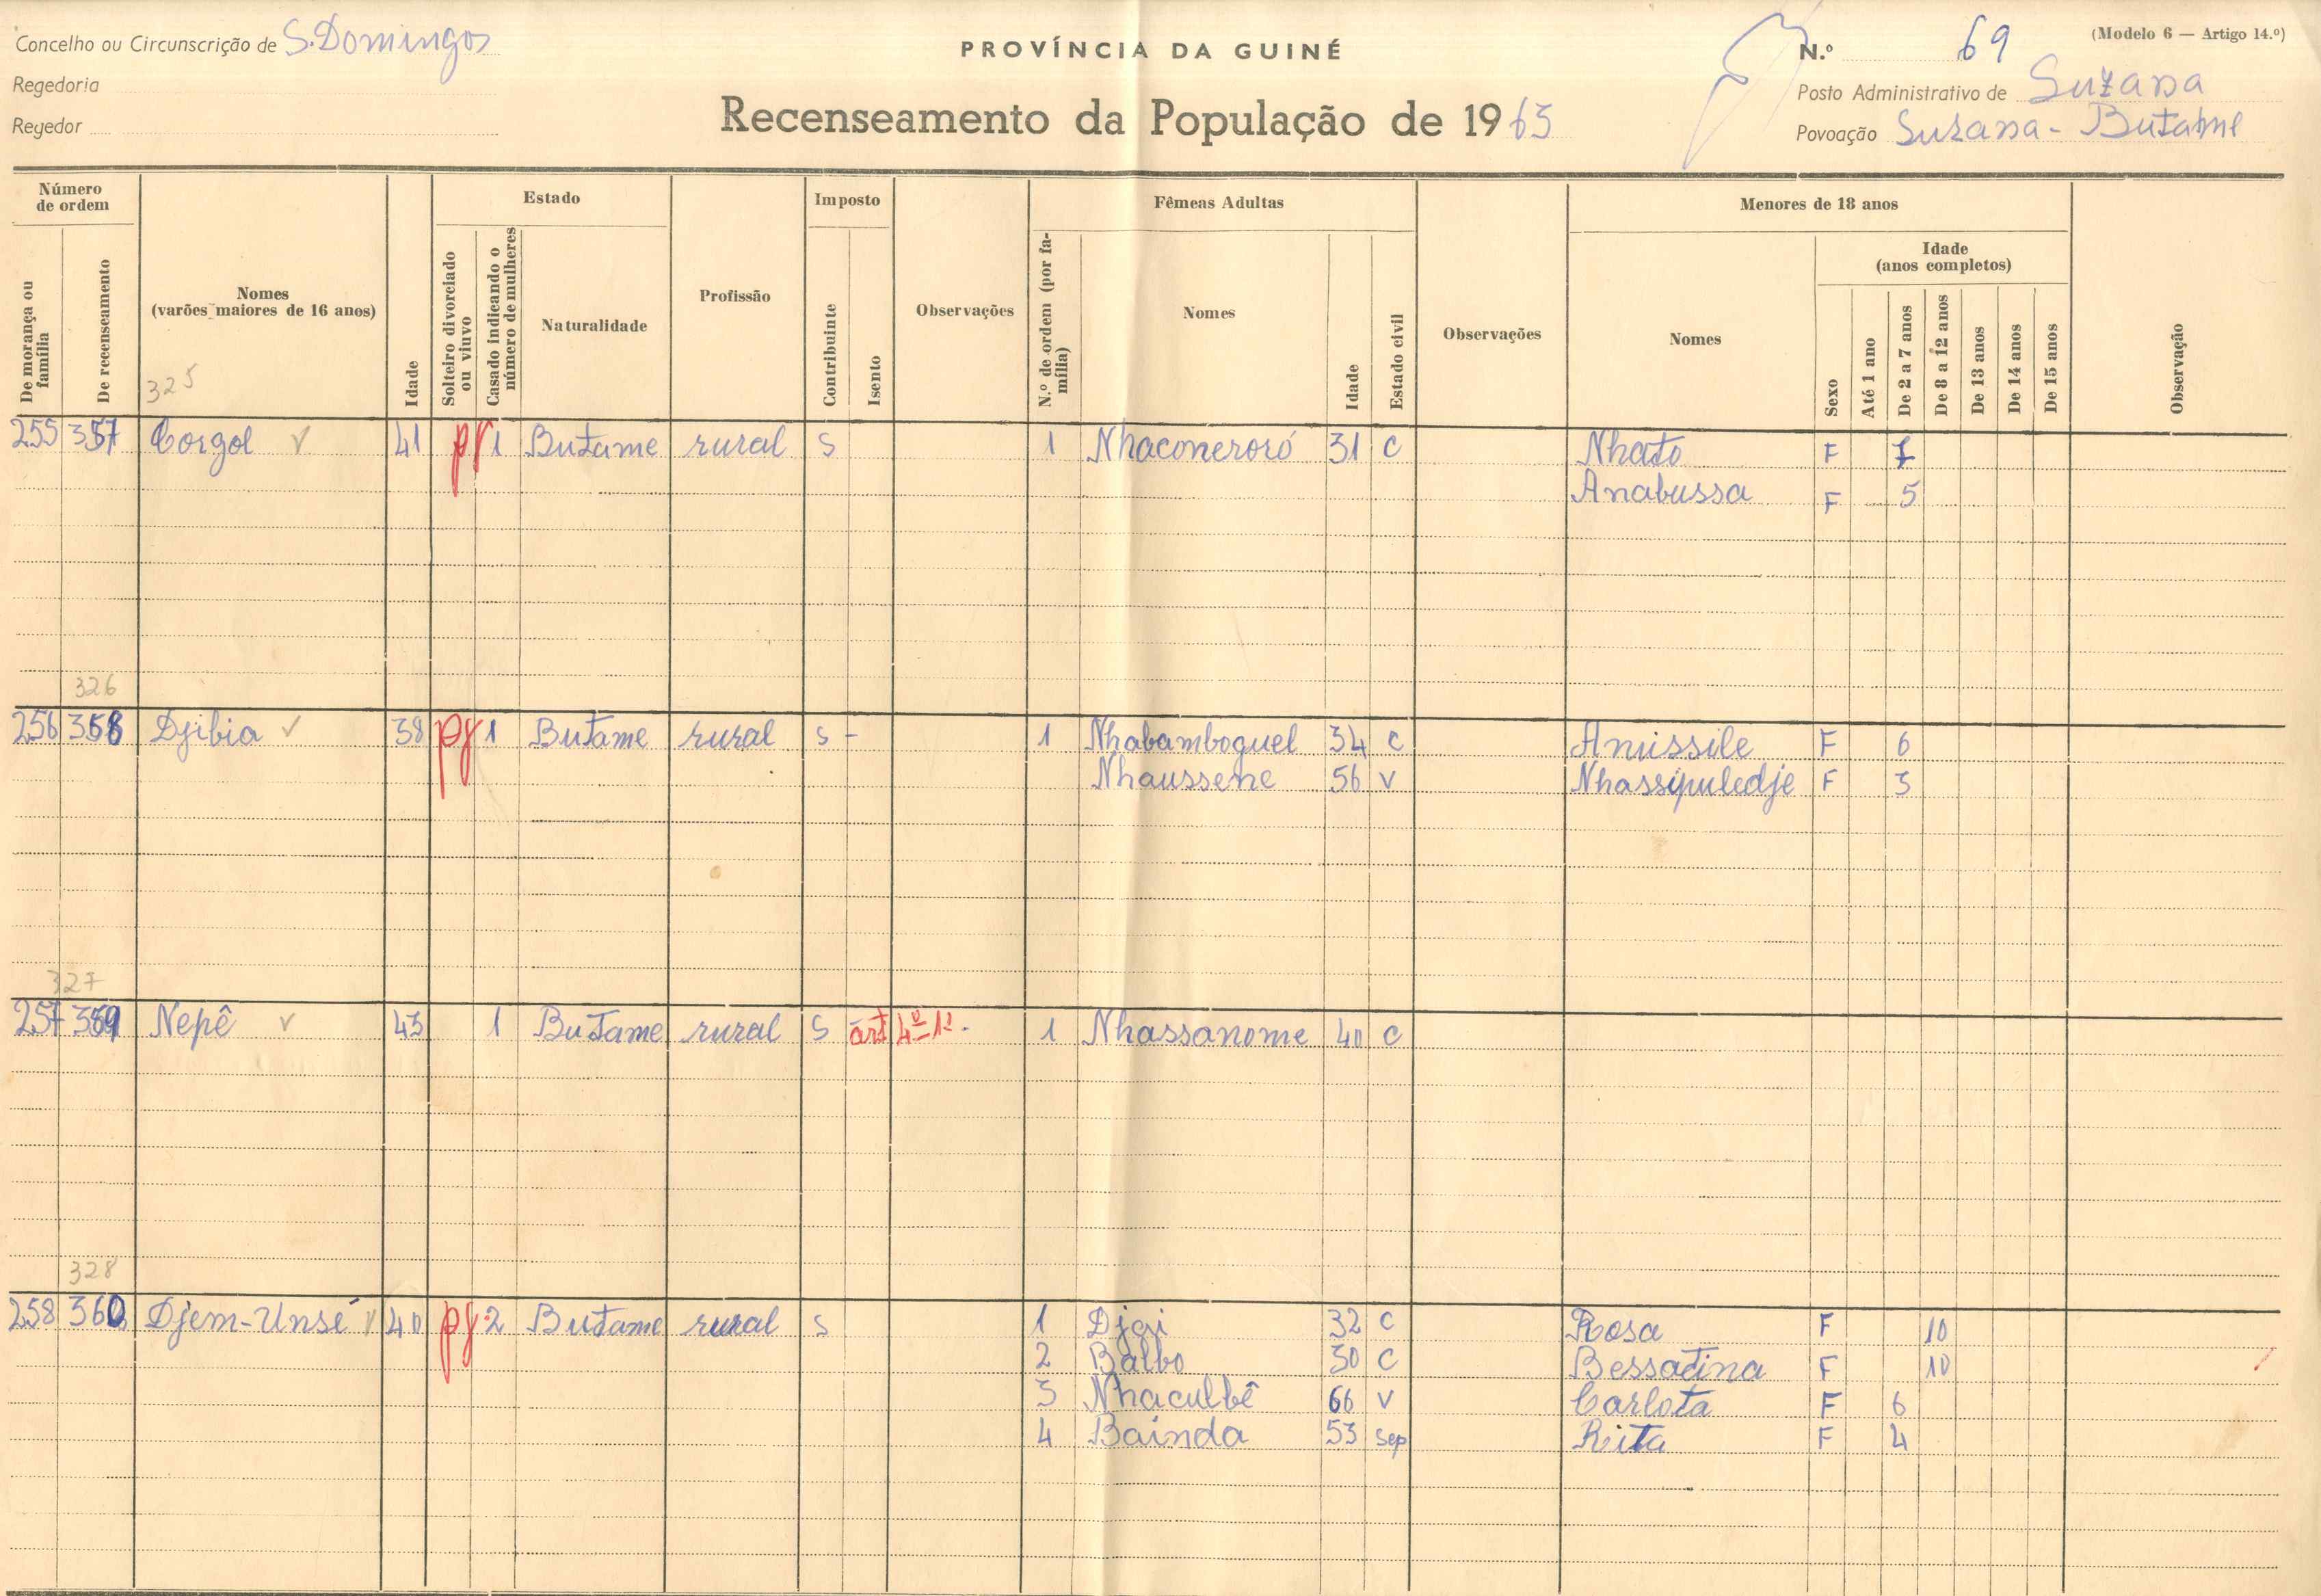 Concelho ou Circunscrição de S. Domingos
PROVÍNCIA DA GUINÉ
N.º 69
(Modelo 6 — Artigo 14.º)
Regedoria
Posto Administrativo de Suzana
Regedor
Recenseamento da População de 1963
Povoação Suzana - Butame
Número de ordem
De morança ou família
De recenseamento
Nomes (varões maiores de 16 anos)
Idade
Estado
Solteiro divorciado ou viuvo
Casado indicando o número de mulheres
Naturalidade
Profissão
Imposto
Contribuinte
Isento
Observações
Fêmeas Adultas
N.º de ordem (por família)
Nomes
Idade
Estado civil
Observações
Menores de 18 anos
Nomes
Sexo
Idade (anos completos)
Até 1 ano
De 2 a 7 anos
De 8 a 12 anos
De 13 anos
De 14 anos
De 15 anos
Observação
325
255 357 Corgol 41 pg 1 Butame rural S 1 Nhaconeroró 31 C Nhato F 7
Anabussa F 5
326
256 358 Djibia 38 pg 1 Butame rural S - 1 Nhabamboguel 34 C Amissile F 6
Nhaussene 56 V Nhassipuledje F 3
327
257 359 Nepê 43 1 Butame rural S art 4º-1º- 1 Nhassanome 40 C
328
258 360 Djem-Unsé 40 pg 2 Butame rural S 1 Djai 32 C Rosa F 10
2 Balbo 30 C Bessatina F 10
3 Nhaculbê 66 V Carlota F 6
4 Bainda 53 Sep Rita F 4